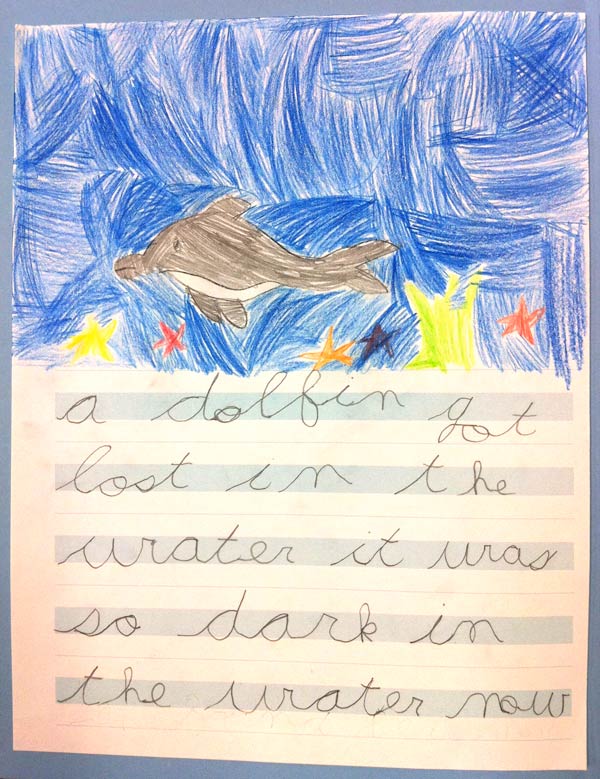 a dolfin got
lost in the
water it was
so dark in
the water now